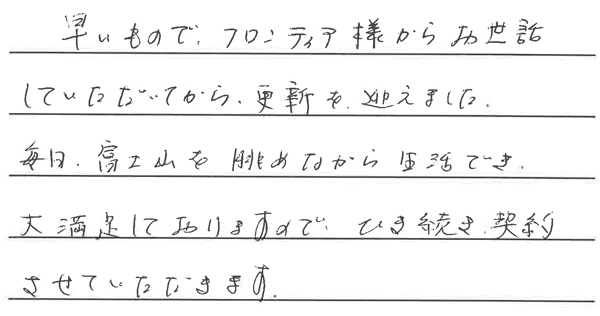 早いもので、フロンティア様からお世話
していただいてから、更新を、迎えました。
毎日、富士山を眺めながら生活でき、
大満足しておりますので、ひき続き、契約
させていただきます。